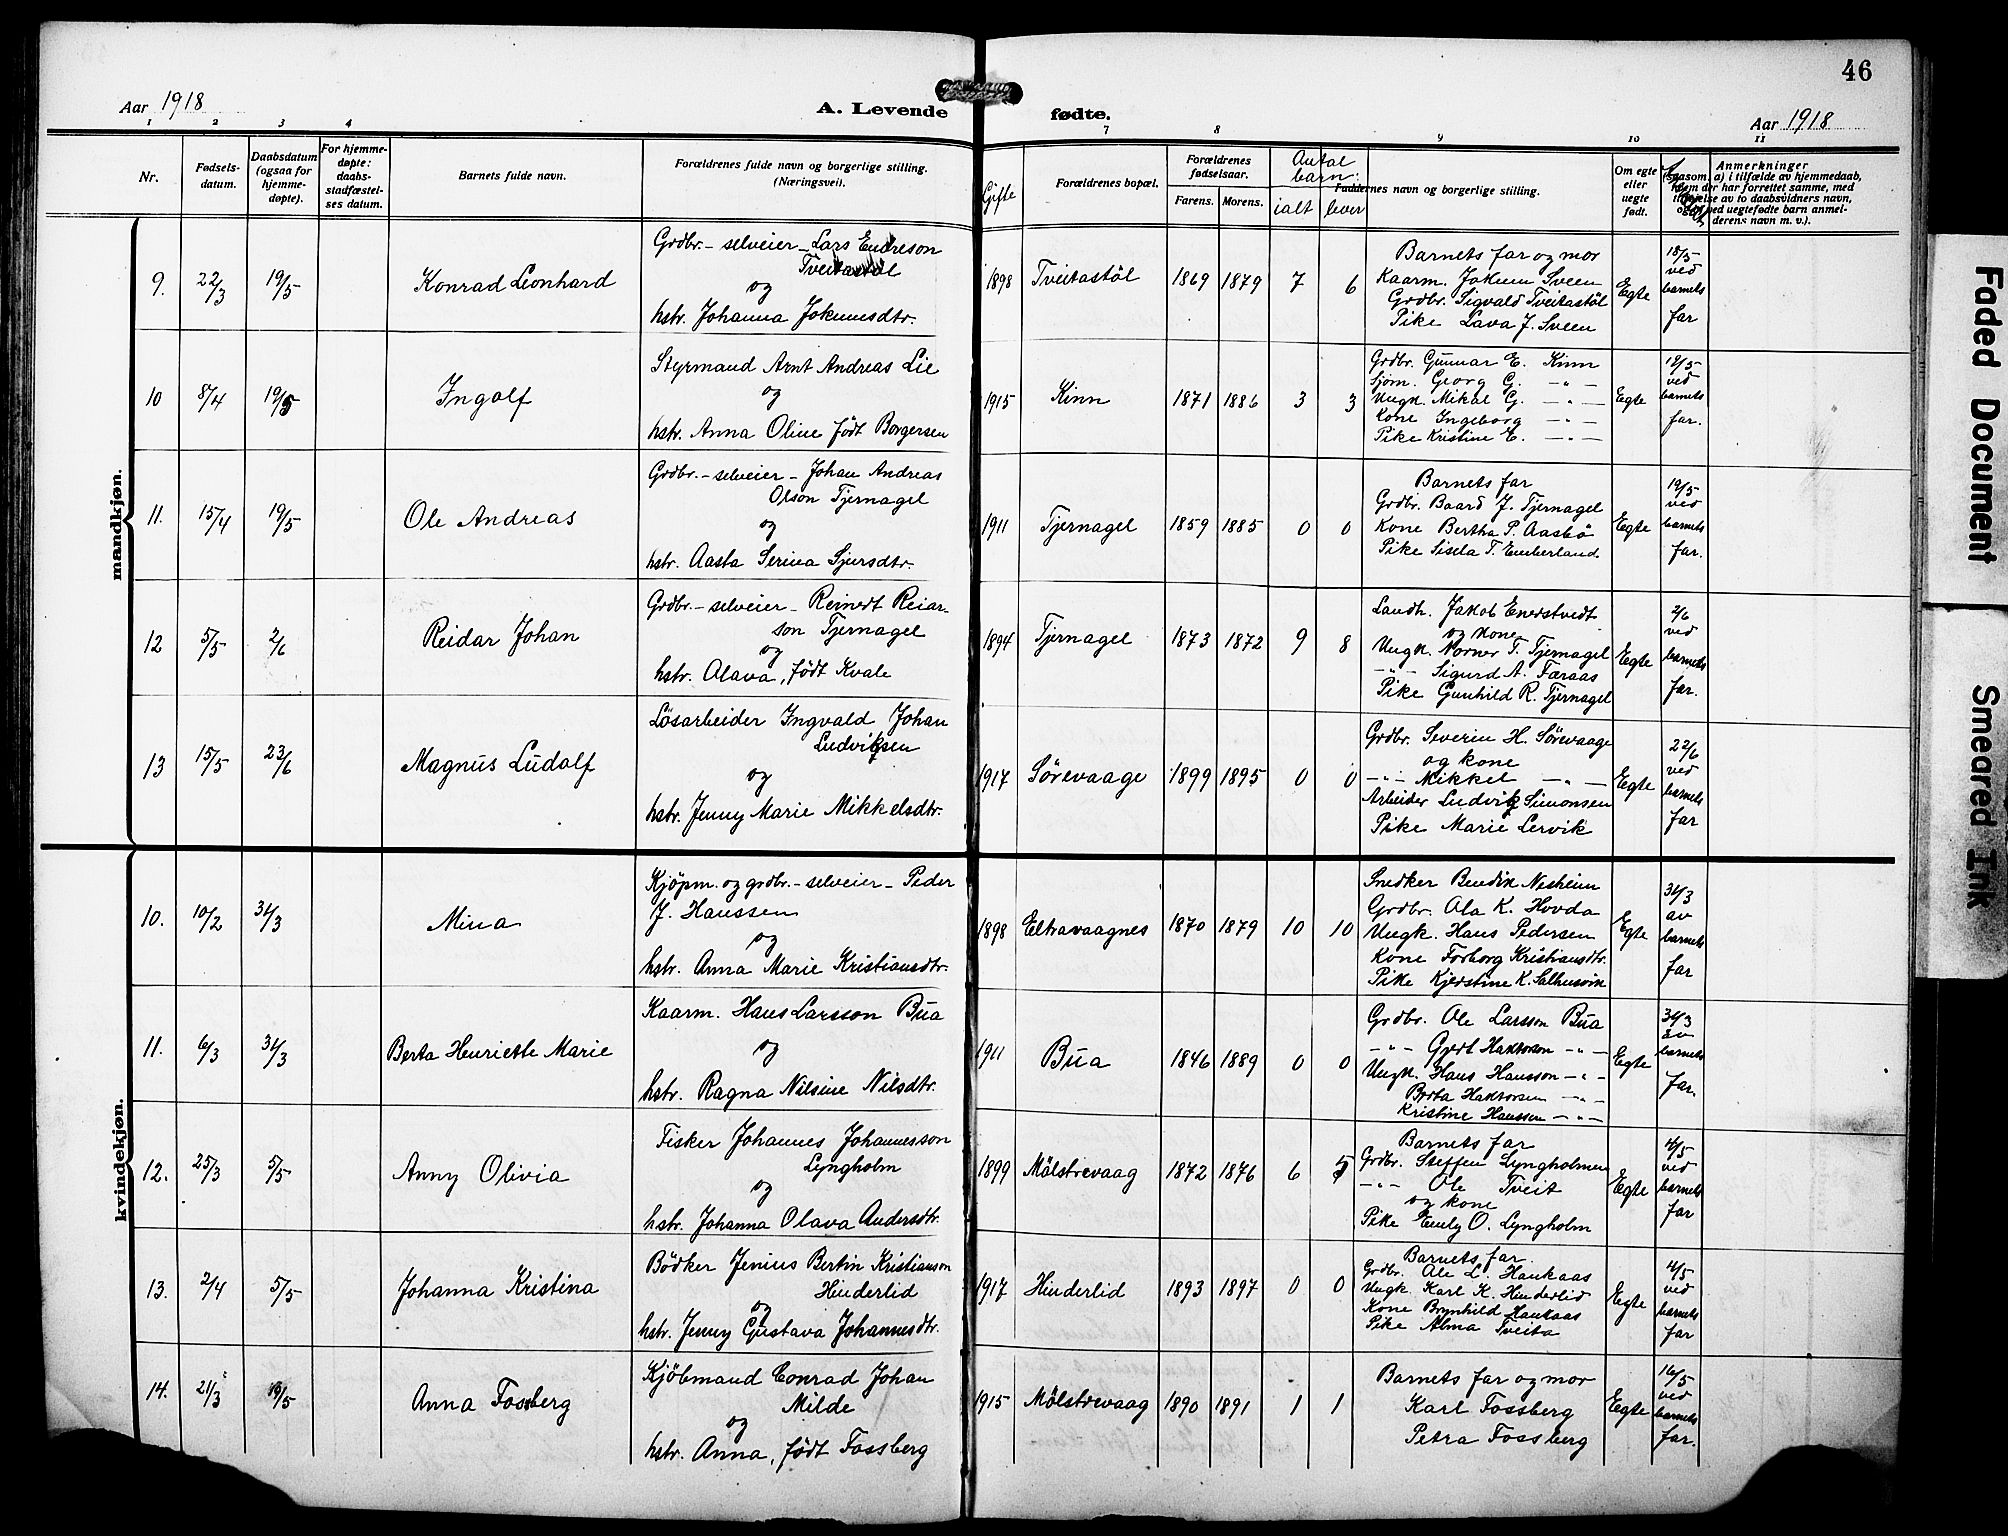 46
Aar 1918
A. Levende fødte.
Aar 1918
1 2 3 4 7 8 9 10 11
Nr.
Fødselsdatum.
Daabsdatum (ogsaa for hjemmedøpte).
For hjemmedøpte: daabsstadfæstelses datum.
Barnets fulde navn.
Forældrenes fulde navn og borgerlige stilling. (Næringsvei).
Gifte
Forældrenes bopæl.
Forældrenes fødselsaar.
Farens. Morens.
Antal barn:
ialt lever
Faddernes navn og borgerlige stilling.
Om egte eller uegte født.
Anmerkninger
(saasom a) i tilfælde av hjemmedaab,
hvem der har forrettet samme, med
tilføielse av to daabsvidners navn,
og b) ved uegtefødte barn anmel-
derens navn m. v.).
mandkjøn.
9. 22/3 19/5 Konrad Leonhard
Grdbr. – selveier – Lars Endreson
Tveitastøl
og
hstr. Johanna Jokumsdtr.
1898 Tveitastöl 1869 1879 7 6
Barnets far og mor
Kaarm. Jokum Sveen
Grdbr. Sigvald Tveitastöl
Pike Lava J. Sveen
Egte
18/5 ved barnets far
10 8/4 19/5 Ingolf
Styrmand Arnt Andreas Lie
og
hstr. Anna Oline født Borgersen
1915 Kinn 1871 1886 3 3
Grdbr. Gunnar E. Kinn
Sjöm. Georg G. – " –
Ungk. Mikal G. – " –
Kone Ingeborg – " –
Pike Kristine E. – " –
Egte
18/5 ved barnets far.
11. 15/4 19/5 Ole Andreas
Grdbr. – selveier – Johan Andreas
Olson Tjernagel
og
hstr. Aasta Serina Sjursdtr.
1911 Tjernagel 1859 1885 0 0
Barnets far
Grdbr. Baard J. Tjernagel
Kone Bertha P. Aasbö
Pike Sisela T. Emberland
Egte
19/5 ved barnets far.
12 5/5 2/6 Reidar Johan
Grdbr. – selveier – Reinert Reiar-
son Tjernagel
og
hstr. Olava, født Kvale
1894 Tjernagel 1873 1872 9 8
Landh. Jakob Enerstvedt
og kone
Ungk. Norner T. Tjernagel
– " – Sigurd A. Færaas
Pike Gunhild R. Tjernagel
Egte
2/6 ved barnets far.
13 15/5 23/6 Magnus Ludolf
Løsarbeider Ingvald Johan
Ludvigsen
og
hstr. Jenny Marie Mikkelsdtr.
1917 Sörevaage 1899 1895 0 0
Grdbr. Severin H. Sörevaage
og kone
– " – Mikkel – " –
Arbeider Ludvig Simonsen
Pike Marie Lervik
Egte
22/6 ved barnets far
kvindekjøn.
10. 10/2 31/3 Mina
Kjöpm. og grdbr. – selveier – Peder
J. Hanssen
og
hstr. Anna Marie Kristiansdtr.
1898 Eltravaagnes 1870 1879 10 10
Snedker Bendik Nesheim
Grdbr. Ola K. Hovda
Ungk. Hans Pedersen
Kone Torborg Kristiansdtr.
Pike Kjerstine K. Salhusvik
Egte
31/3 av barnets far
11. 6/3 31/3 Berta Henriette Marie
Kaarm. Hans Larsson Bua
og
hstr. Ragna Nilsine Nilsdtr.
1911 Bua 1846 1889 0 0
Grdbr. Ole Larsson Bua
– " – Gjert Haktorson – " –
Ungk. Hans Hansson – " –
Berta Haktorsen – " –
Kristine Hanssen – " –
Egte
31/3 av barnets far.
12. 25/3 5/5 Anny Olivia
Fisker Johannes Johannesson
Lyngholm
og
hstr. Johanna Olava Andersdtr.
1899 Mölstrevaag 1872 1876 6 5
Barnets far
Grdbr. Steffen Lyngholmen
– " – Ole Tveit
og kone
Pike Emely O. Lyngholm
Egte
4/5 ved barnets far
13. 2/4 5/5 Johanna Kristina
Bödker Jenius Bertin Kristianson
Hinderlid
og
hstr. Jenny Gustava Johannesdtr.
1917 Hinderlid 1893 1897 0 0
Barnets far
Grdbr. Ole L. Haukaas
Ungk. Karl K. Hinderlid
Kone Brynhild Haukaas
Pike Alma Tveita
Egte
4/5 ved barnets far
14. 21/3 19/5 Anna Fossberg
Kjöbmand Conrad Johan
Milde
og
hstr. Anna, født Fossberg
1915 Mölstrevaag 1890 1891 1 1
Barnets far og mor
Karl Fossberg
Petra Fossberg
Egte
16/5 ved barnets far.
Faded Document
Smeared Ink